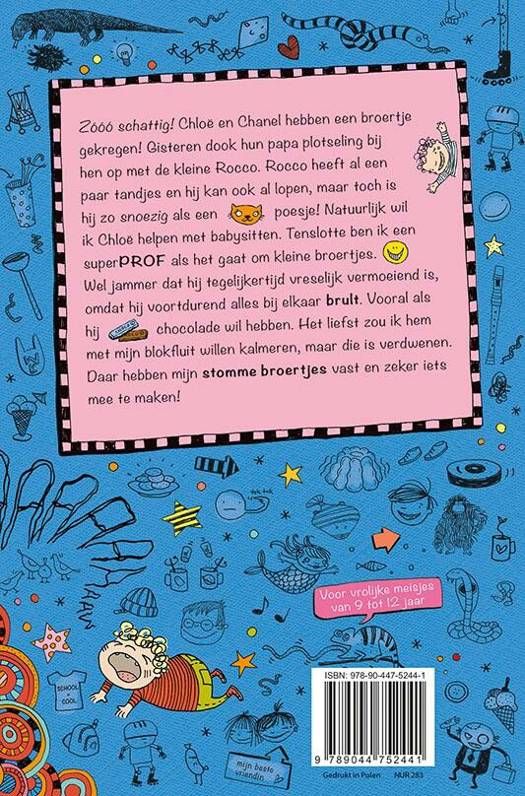 Zóóó schattig! Chloë en Chanel hebben een broertje
gekregen! Gisteren dook hun papa plotseling bij
hen op met de kleine Rocco. Rocco heeft al een
paar tandjes en hij kan ook al lopen, maar toch is
hij zo snoezig als een poesje! Natuurlijk wil
ik Chloë helpen met babysitten. Tenslotte ben ik een
superPROF als het gaat om kleine broertjes.
Wel jammer dat hij tegelijkertijd vreselijk vermoeiend is,
omdat hij voortdurend alles bij elkaar brult. Vooral als
hij chocolade wil hebben. Het liefst zou ik hem
met mijn blokfluit willen kalmeren, maar die is verdwenen.
Daar hebben mijn stomme broertjes vast en zeker iets
mee te maken!
tok tok
WAAAAAAAH
Voor vrolijke meisjes
van 9 tot 12 jaar
SCHOOL
=
COOL
mijn beste
vriendin
ISBN: 978-90-447-5244-1
9 789044 752441
Gedrukt in Polen NUR 283